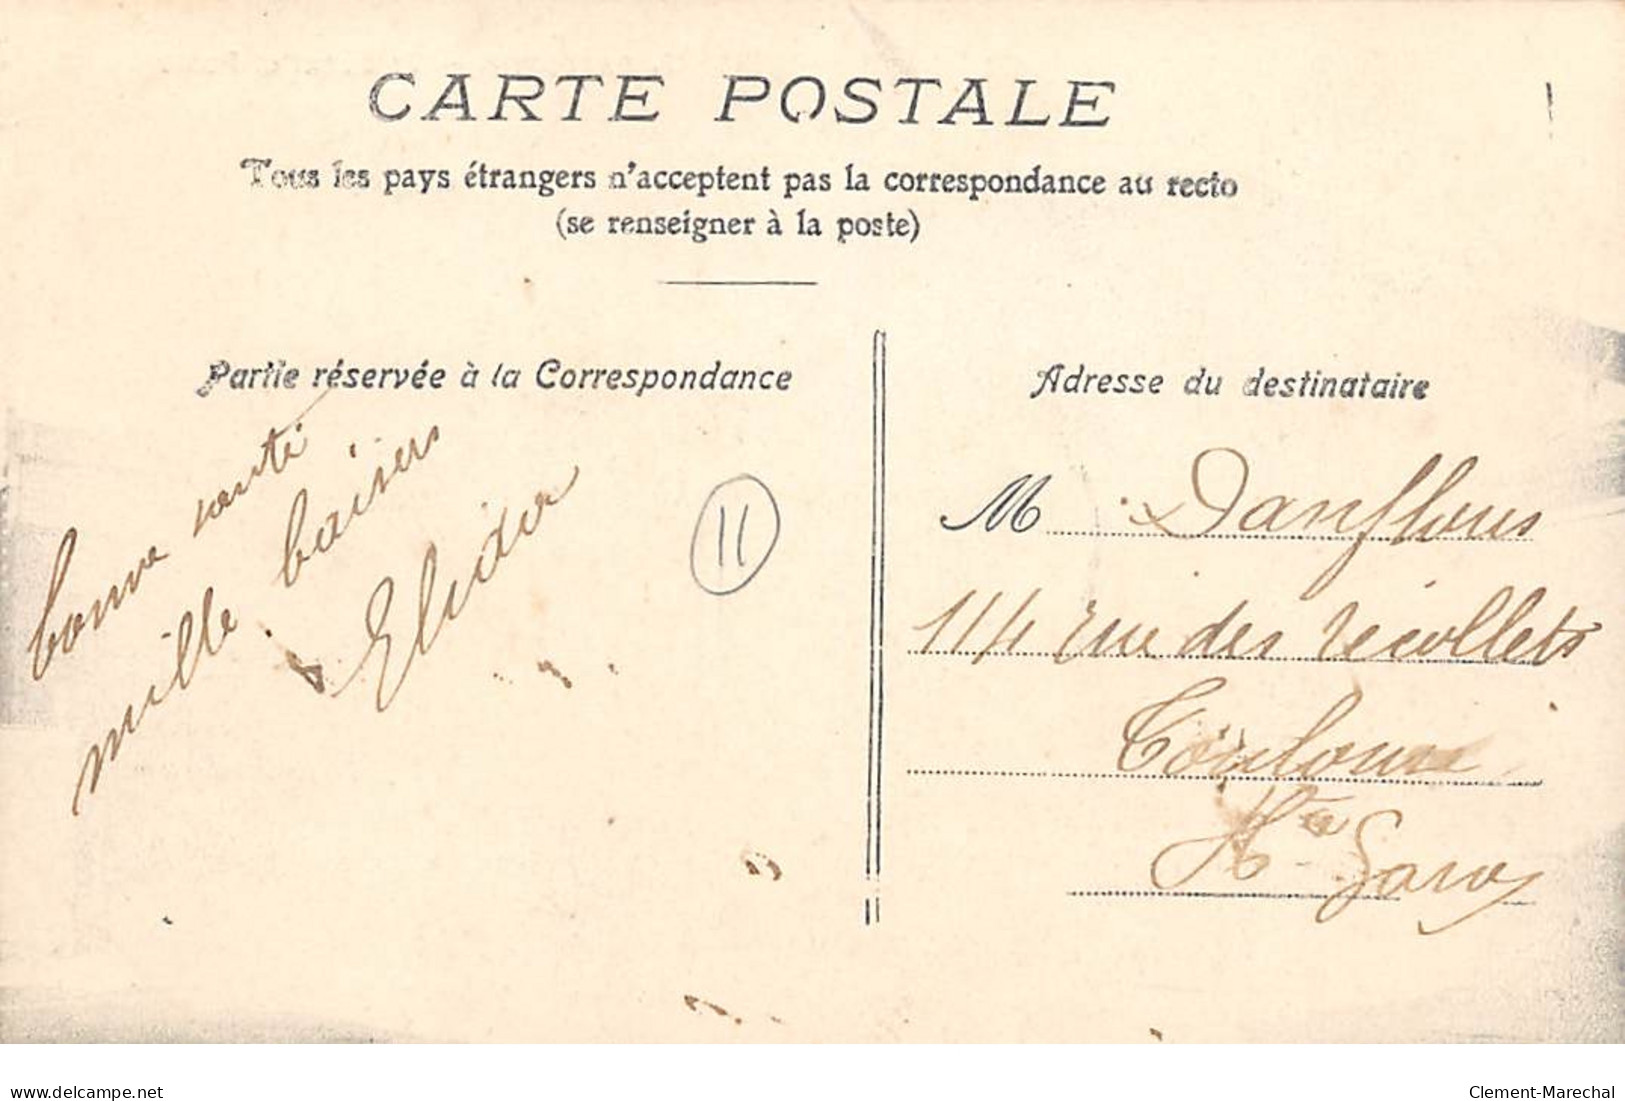 CARTE POSTALE
Tous les pays étrangers n'acceptent pas la correspondance au recto
(se renseigner à la poste)
Partie réservée à la Correspondance
bonne santé
mille baisers
Elida
11
Adresse du destinataire
M Danflous
114 rue des récollets
Toulouse
Hte Garo
delcampe.net
Clement-Marechal